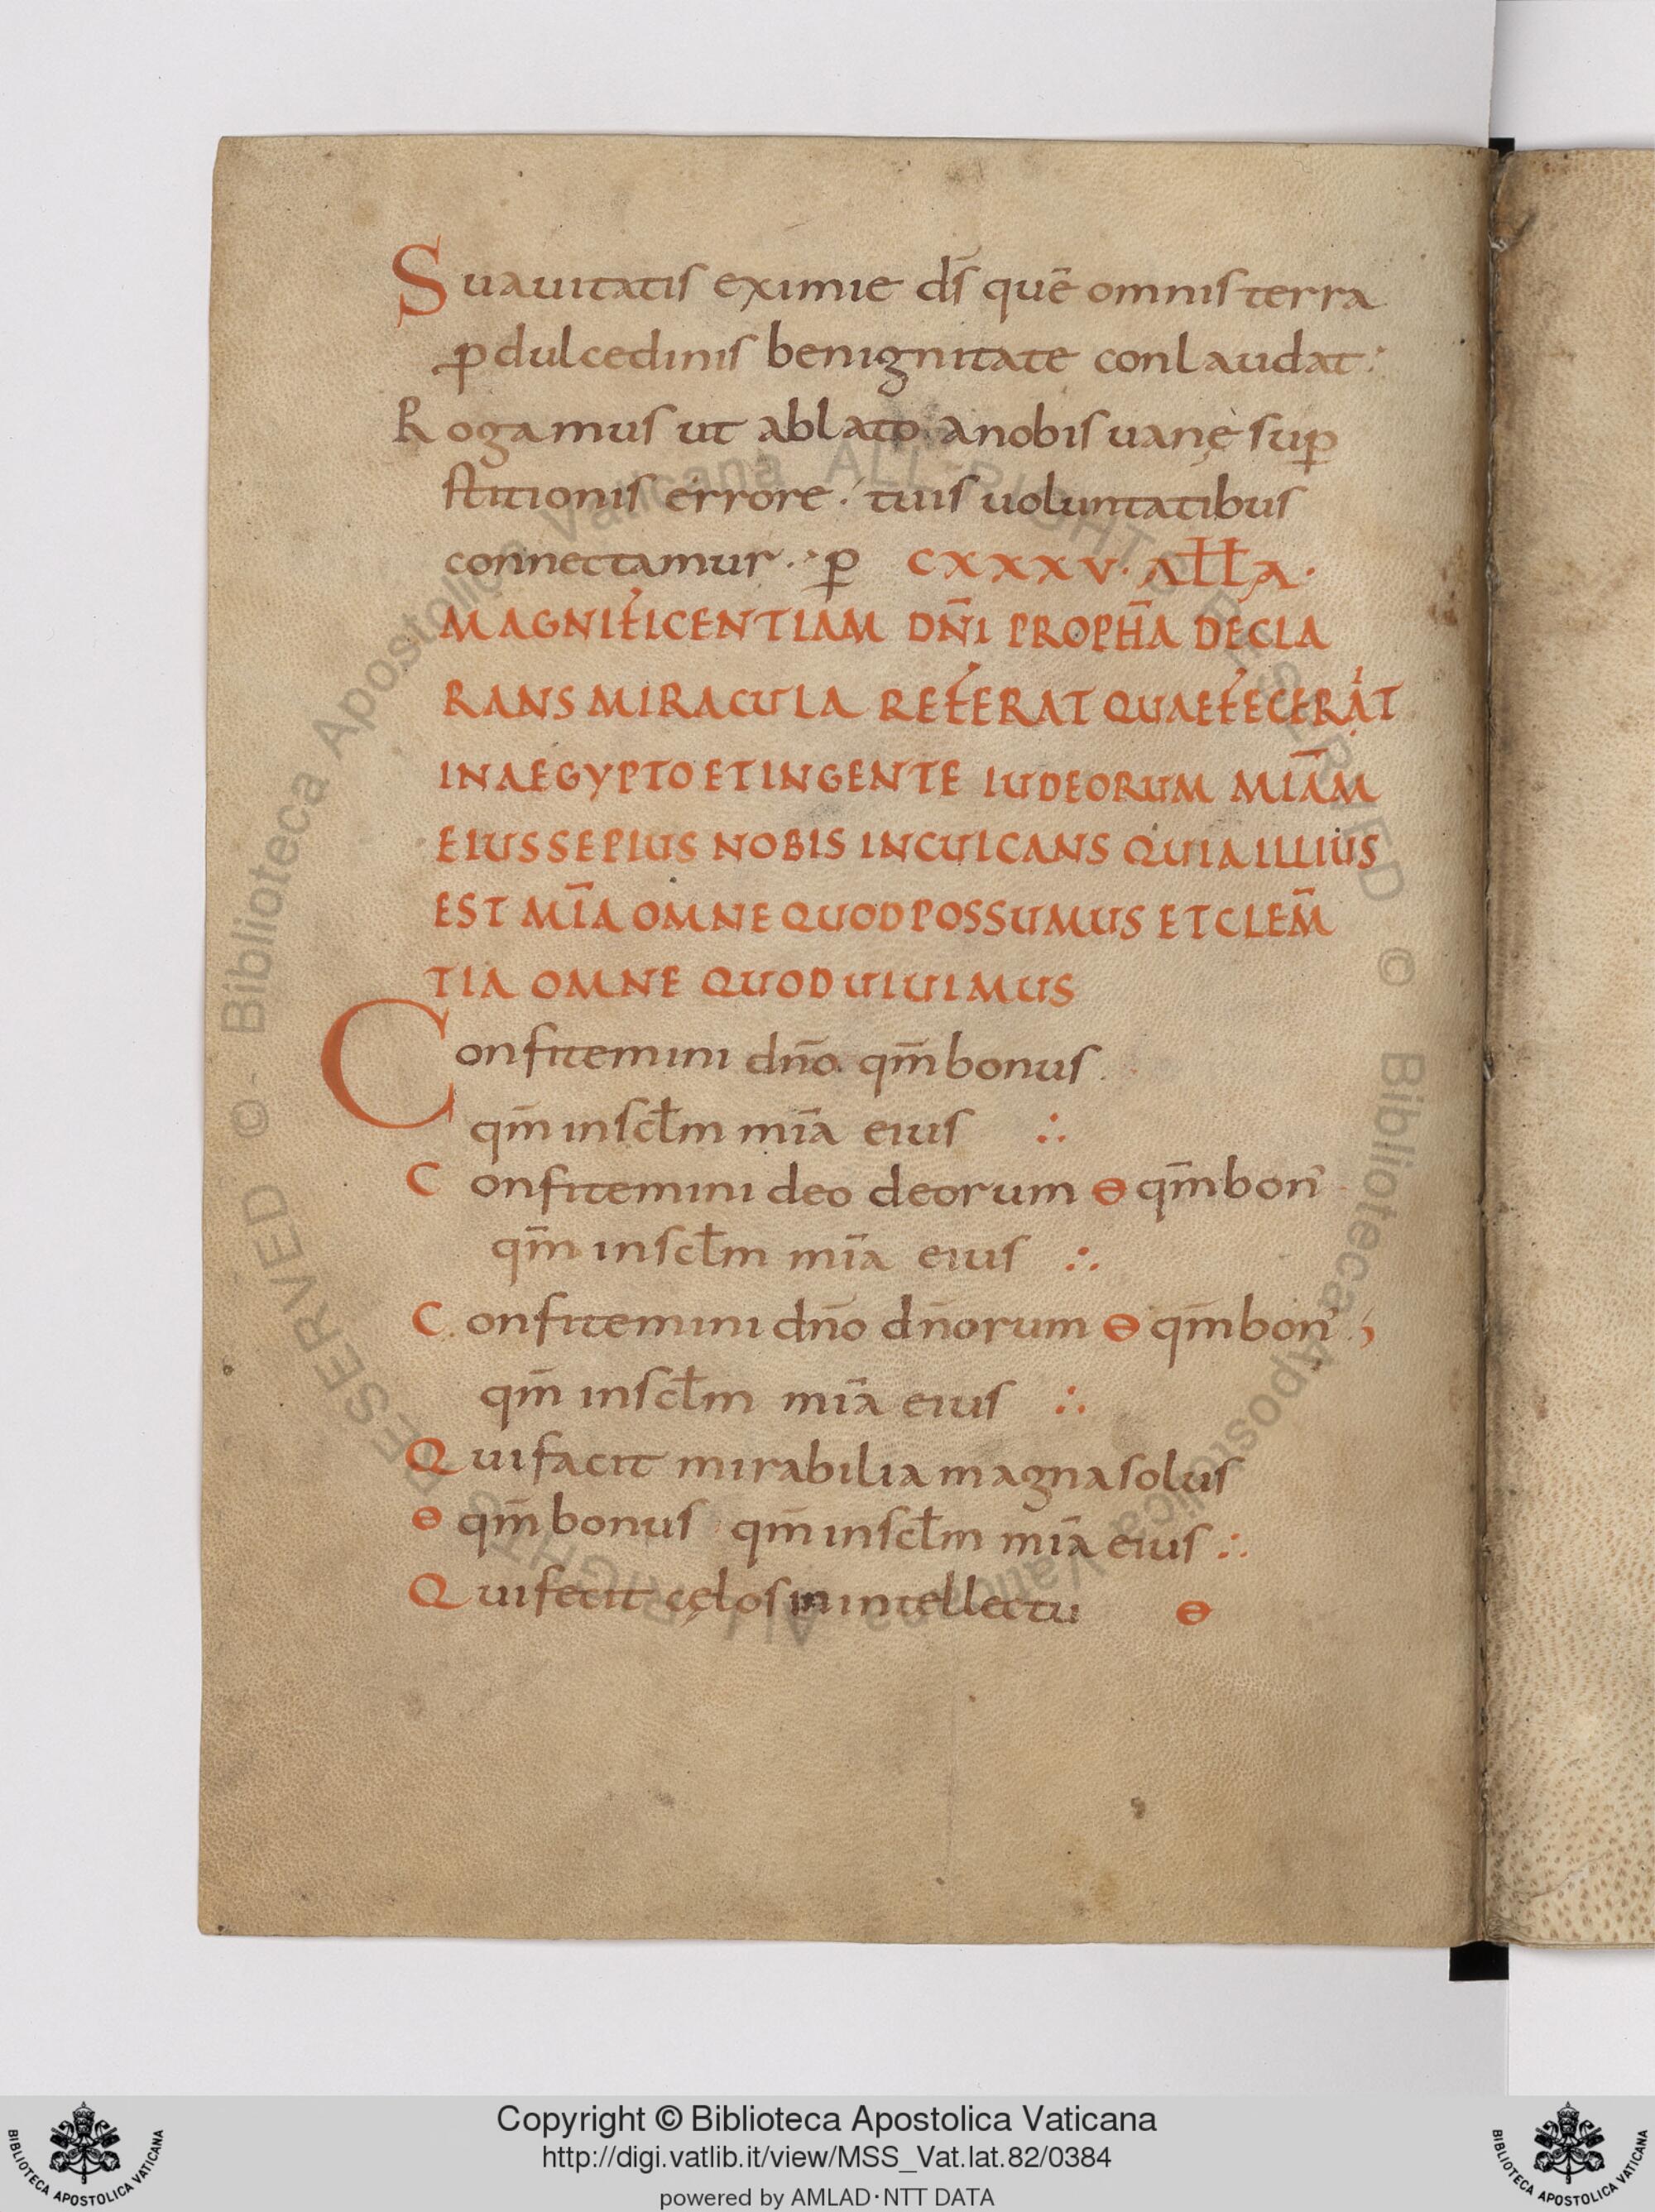 Suauitatis eximie ds̄ quē omnis terra
ꝓ dulcedinis benignitate conlaudat·
Rogamus ut ablato anobis uanę suꝑ
stitionis errore· tuis uoluntatibus
connectamur· ꝑ CXXXV· ALŁA·
MAGNIFICENTIAM DN̄I PROPHA̅ DECLA
RANS MIRACULA REFERAT QUAE FECERAT
IN AEGYPTO ET IN GENTE IUDEORUM MIA̅M
EIUS SEPIUS NOBIS INCULCANS QUIA ILLIUS
EST MI̅A OMNE QUOD POSSUMUS ET CLEM̅
TIA OMNE QUOD UIUIMUS
Confitemini dn̄o qm̄ bonus
qm̄ insclm̄ mīa eius ∴
Confitemini deo deorum ɵ qm̄ bon'
qm̄ insclm̄ mīa eius ∴
Confitemini dn̄o dn̄orum ɵ qm̄ bon'
qm̄ insclm̄ mīa eius ∴
Qui facit mirabilia magna solus
ɵ qm̄ bonus qm̄ insclm̄ mīa eius ∴
Qui fecit cęlos in intellectu ɵ
© Biblioteca Apostolica Vaticana ALL RIGHTS RESERVED
© Biblioteca Apostolica Vaticana ALL RIGHTS RESERVED
Copyright © Biblioteca Apostolica Vaticana
http://digi.vatlib.it/view/MSS_Vat.lat.82/0384
powered by AMLAD·NTT DATA
BIBLIOTECA APOSTOLICA VATICANA
BIBLIOTECA APOSTOLICA VATICANA